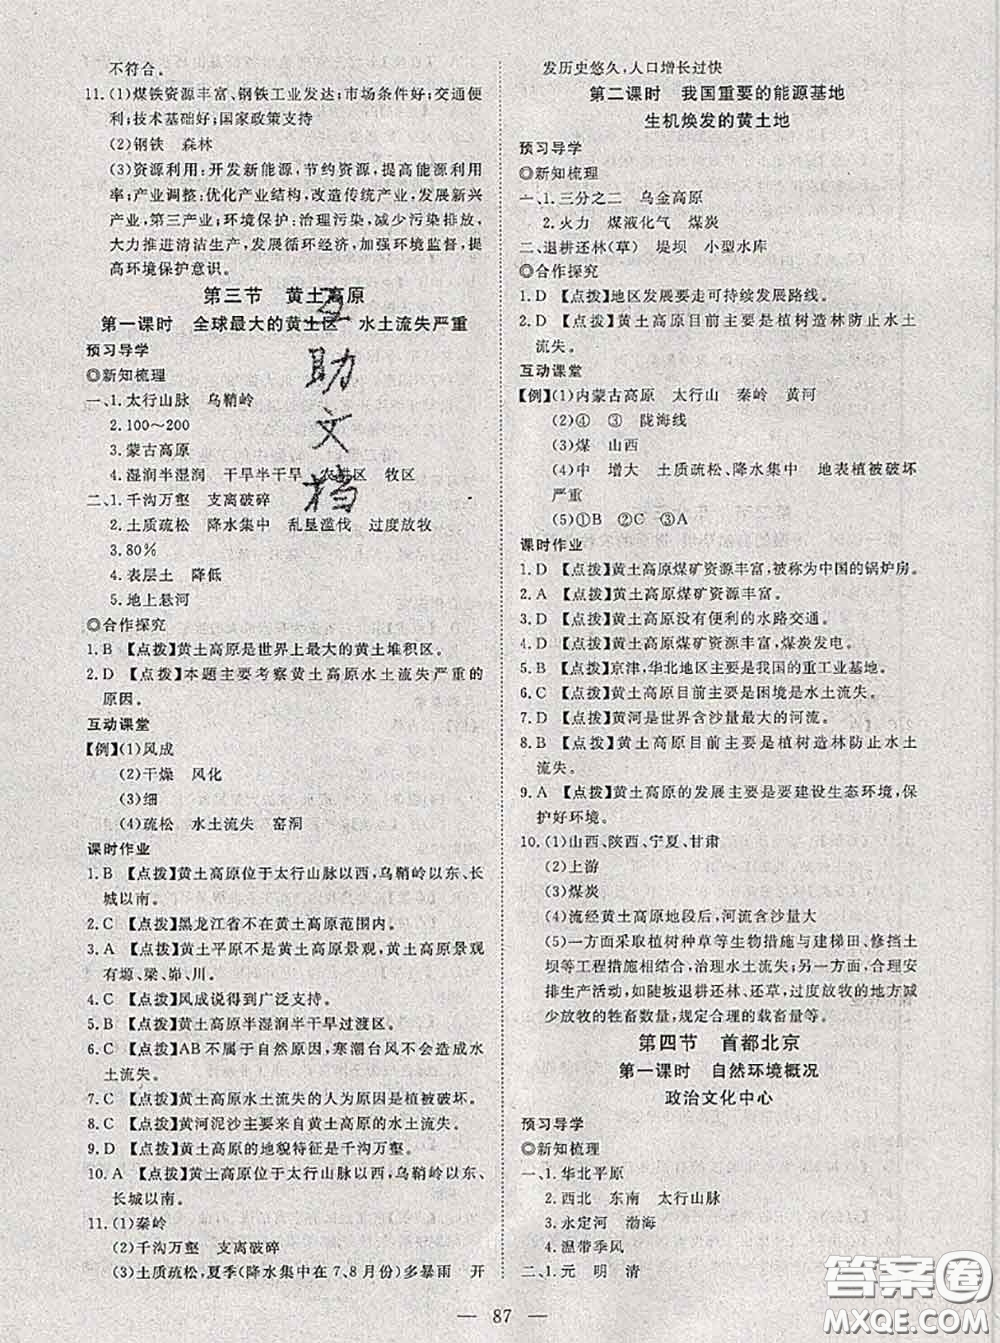 不符合。
11.(1)煤铁资源丰富、钢铁工业发达;市场条件好;交通便
利;技术基础好;国家政策支持
(2)钢铁 森林
(3)资源利用:开发新能源,节约资源,提高资源利用
率;产业调整:优化产业结构,改造传统产业,发展新兴
产业,第三产业;环境保护:治理污染,减少污染排放,
大力推进清洁生产,发展循环经济,加强环境监督,提
高环境保护意识。
第三节 黄土高原
第一课时 全球最大的黄土区 水土流失严重
预习导学
◎新知梳理
一、1.太行山脉 乌鞘岭
2.100~200
3.蒙古高原
4.湿润半湿润 干旱半干旱 农耕区 牧区
二、1.千沟万壑 支离破碎
2.土质疏松 降水集中 乱垦滥伐 过度放牧
3.80%
4.表层土 降低
5.地上悬河
◎合作探究
1.B 【点拨】黄土高原是世界上最大的黄土堆积区。
2.D 【点拨】本题主要考察黄土高原水土流失严重的
原因。
互动课堂
【例】(1)风成
(2)干燥 风化
(3)细
(4)疏松 水土流失 窑洞
课时作业
1.B 【点拨】黄土高原位于太行山脉以西,乌鞘岭以东、长
城以南。
2.C 【点拨】黑龙江省不在黄土高原范围内。
3.A 【点拨】黄土平原不是黄土高原景观,黄土高原景观
有塬、梁、峁、川。
4.C 【点拨】风成说得到广泛支持。
5.B 【点拨】黄土高原半湿润半干旱过渡区。
6.C 【点拨】AB不属于自然原因,寒潮台风不会造成水
土流失。
7.C 【点拨】黄土高原水土流失的人为原因是植被破坏。
8.C 【点拨】黄河泥沙主要来自黄土高原。
9.D 【点拨】黄土高原的地貌特征是千沟万壑。
10.A 【点拨】黄土高原位于太行山脉以西,乌鞘岭以东、
长城以南。
11.(1)秦岭
(2)千沟万壑 支离破碎
(3)土质疏松,夏季(降水集中在7、8月份)多暴雨 开
发历史悠久,人口增长过快
第二课时 我国重要的能源基地
生机焕发的黄土地
预习导学
◎新知梳理
一、1.三分之二 乌金高原
2.火力 煤液化气 煤炭
二、退耕还林(草) 堤坝 小型水库
◎合作探究
1.D 【点拨】地区发展要走可持续发展路线。
2.D 【点拨】黄土高原目前主要是植树造林防止水土
流失。
互动课堂
【例】(1)内蒙古高原 太行山 秦岭 黄河
(2)④ ③ 陇海线
(3)煤 山西
(4)中 增大 土质疏松、降水集中 地表植被破坏
严重
(5)①B ②C ③A
课时作业
1.D 【点拨】黄土高原煤矿资源丰富,被称为中国的锅炉房。
2.A 【点拨】黄土高原煤矿资源丰富。
3.D 【点拨】黄土高原没有便利的水路交通。
4.D 【点拨】黄土高原煤矿资源丰富,煤炭发电。
5.B 【点拨】京津,华北地区主要是我国的重工业基地。
6.C 【点拨】黄土高原目前主要是困境是水土流失。
7.D 【点拨】黄河是世界含沙量最大的河流。
8.B 【点拨】黄土高原目前主要是植树造林防止水土
流失。
9.A 【点拨】黄土高原的发展主要是要建设生态环境,保
护好环境。
10.(1)山西、陕西、宁夏、甘肃
(2)上游
(3)煤炭
(4)流经黄土高原地段后,河流含沙量大
(5)一方面采取植树种草等生物措施与建梯田、修挡土
坝等工程措施相结合,治理水土流失;另一方面,合理安
排生产活动,如陡坡退耕还林、还草,过度放牧的地方减
少放牧的牲畜数量,规定合理的载畜量等。
第四节 首都北京
第一课时 自然环境概况
政治文化中心
预习导学
◎新知梳理
一、1.华北平原
2.西北 东南 太行山脉
3.永定河 渤海
4.温带季风
二、1.元 明 清
— 87 —
互助文档
答案圈
MXQE.COM